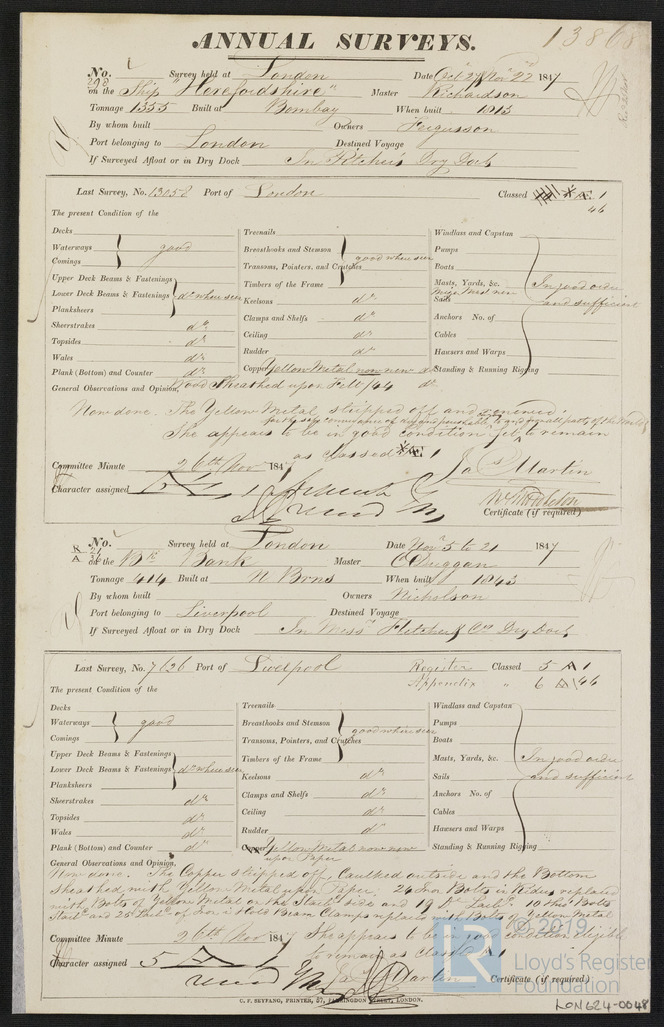 13868
ANNUAL SURVEYS.
No. 298 Survey held at London Date Oct 27 Nov 22 1847
on the Ship "Herefordshire" Master Richardson
Tonnage 1355 Built at Bombay When built 1813
By whom built Owners Fergusson
Port belonging to London Destined Voyage
If Surveyed Afloat or in Dry Dock In Pitchers Dry Dock
Last Survey, No. 13058 Port of London Classed Æ 1
46
The present Condition of the
Decks
Waterways good
Comings
Upper Deck Beams & Fastenings
Lower Deck Beams & Fastenings do where seen
Planksheers
Sheerstrakes do
Topsides do
Wales do
Plank (Bottom) and Counter do
Treenails
Breasthooks and Stemson good where seen
Transoms, Pointers, and Crutches
Timbers of the Frame
Keelsons do
Clamps and Shelfs do
Ceiling do
Rudder do
Copper Yellow Metal now new
Windlass and Capstan
Pumps
Boats
Masts, Yards, &c. In good order
Sails and sufficient
Anchors No. of
Cables
Hawsers and Warps
Standing & Running Rigging
General Observations and Opinion, Wood Sheathed upon Felt /44 do
Now done. The Yellow Metal stripped off and renewed.
She appears to be in good condition & eligible to remain
as classed Æ 1
Committee Minute 26th Nov 1847
Jas Martin
Character assigned Æ 1
Certificate (if required)
No. Survey held at London Date Novr 5 to 21 1847
R A
on the Bk Bank Master C Duggan
Tonnage 414 Built at N Brns When built 1843
By whom built Owners Nicholson
Port belonging to Liverpool Destined Voyage
If Surveyed Afloat or in Dry Dock In Messrs Fletcher & Co Dry Dock
Last Survey, No. 7626 Port of Liverpool Register Classed 5 A 1
Appendix " 6 A /46
The present Condition of the
Decks
Waterways good
Comings
Upper Deck Beams & Fastenings
Lower Deck Beams & Fastenings do where seen
Planksheers
Sheerstrakes do
Topsides do
Wales do
Plank (Bottom) and Counter do
Treenails
Breasthooks and Stemson good where seen
Transoms, Pointers, and Crutches
Timbers of the Frame
Keelsons do
Clamps and Shelfs do
Ceiling do
Rudder do
Copper Yellow Metal now new
upon Paper
Windlass and Capstan
Pumps
Boats
Masts, Yards, &c. In good order
Sails and sufficient
Anchors No. of
Cables
Hawsers and Warps
Standing & Running Rigging
General Observations and Opinion,
Now done. The Copper stripped off, Caulked outside and the Bottom
sheathed with Yellow Metal upon Paper. 24 Iron Bolts in Rider replaced
with Bolts of Yellow Metal on the Starbd side and 19 Do Larbd. 10 Bolts
Starbd and 25 Larbd of Iron in Hold Beam Clamps replaced with Bolts of Yellow Metal
Committee Minute 26th Nov 1847 She appears to be in good condition eligible
to remain as Classed A 1
Character assigned 5 A 1
Jas Martin
Certificate (if required)
C. F. SEYFANG, PRINTER, 57, FARRINGDON STREET, LONDON.
© 2019
LR
Lloyd's Register
Foundation
LON624-0048